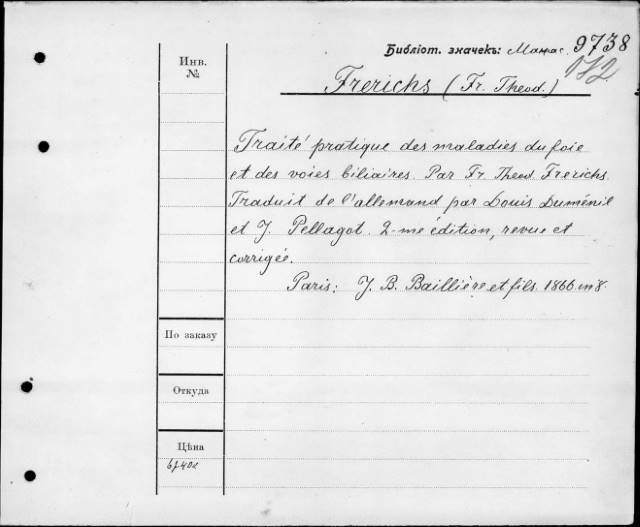 Библіот. значекъ: Манас. 9738
172
Инв.
№
Frerichs (Fr. Theod.)
Traité pratique des maladies du foie
et des voies biliaires. Par Fr. Theod. Frerichs.
Traduit de l'allemand par Louis Duménil
et J. Pellagot. 2-me édition, revue et
corrigée.
Paris: J. B. Baillière et fils. 1866. in 8.
По заказу
Откуда
Цѣна